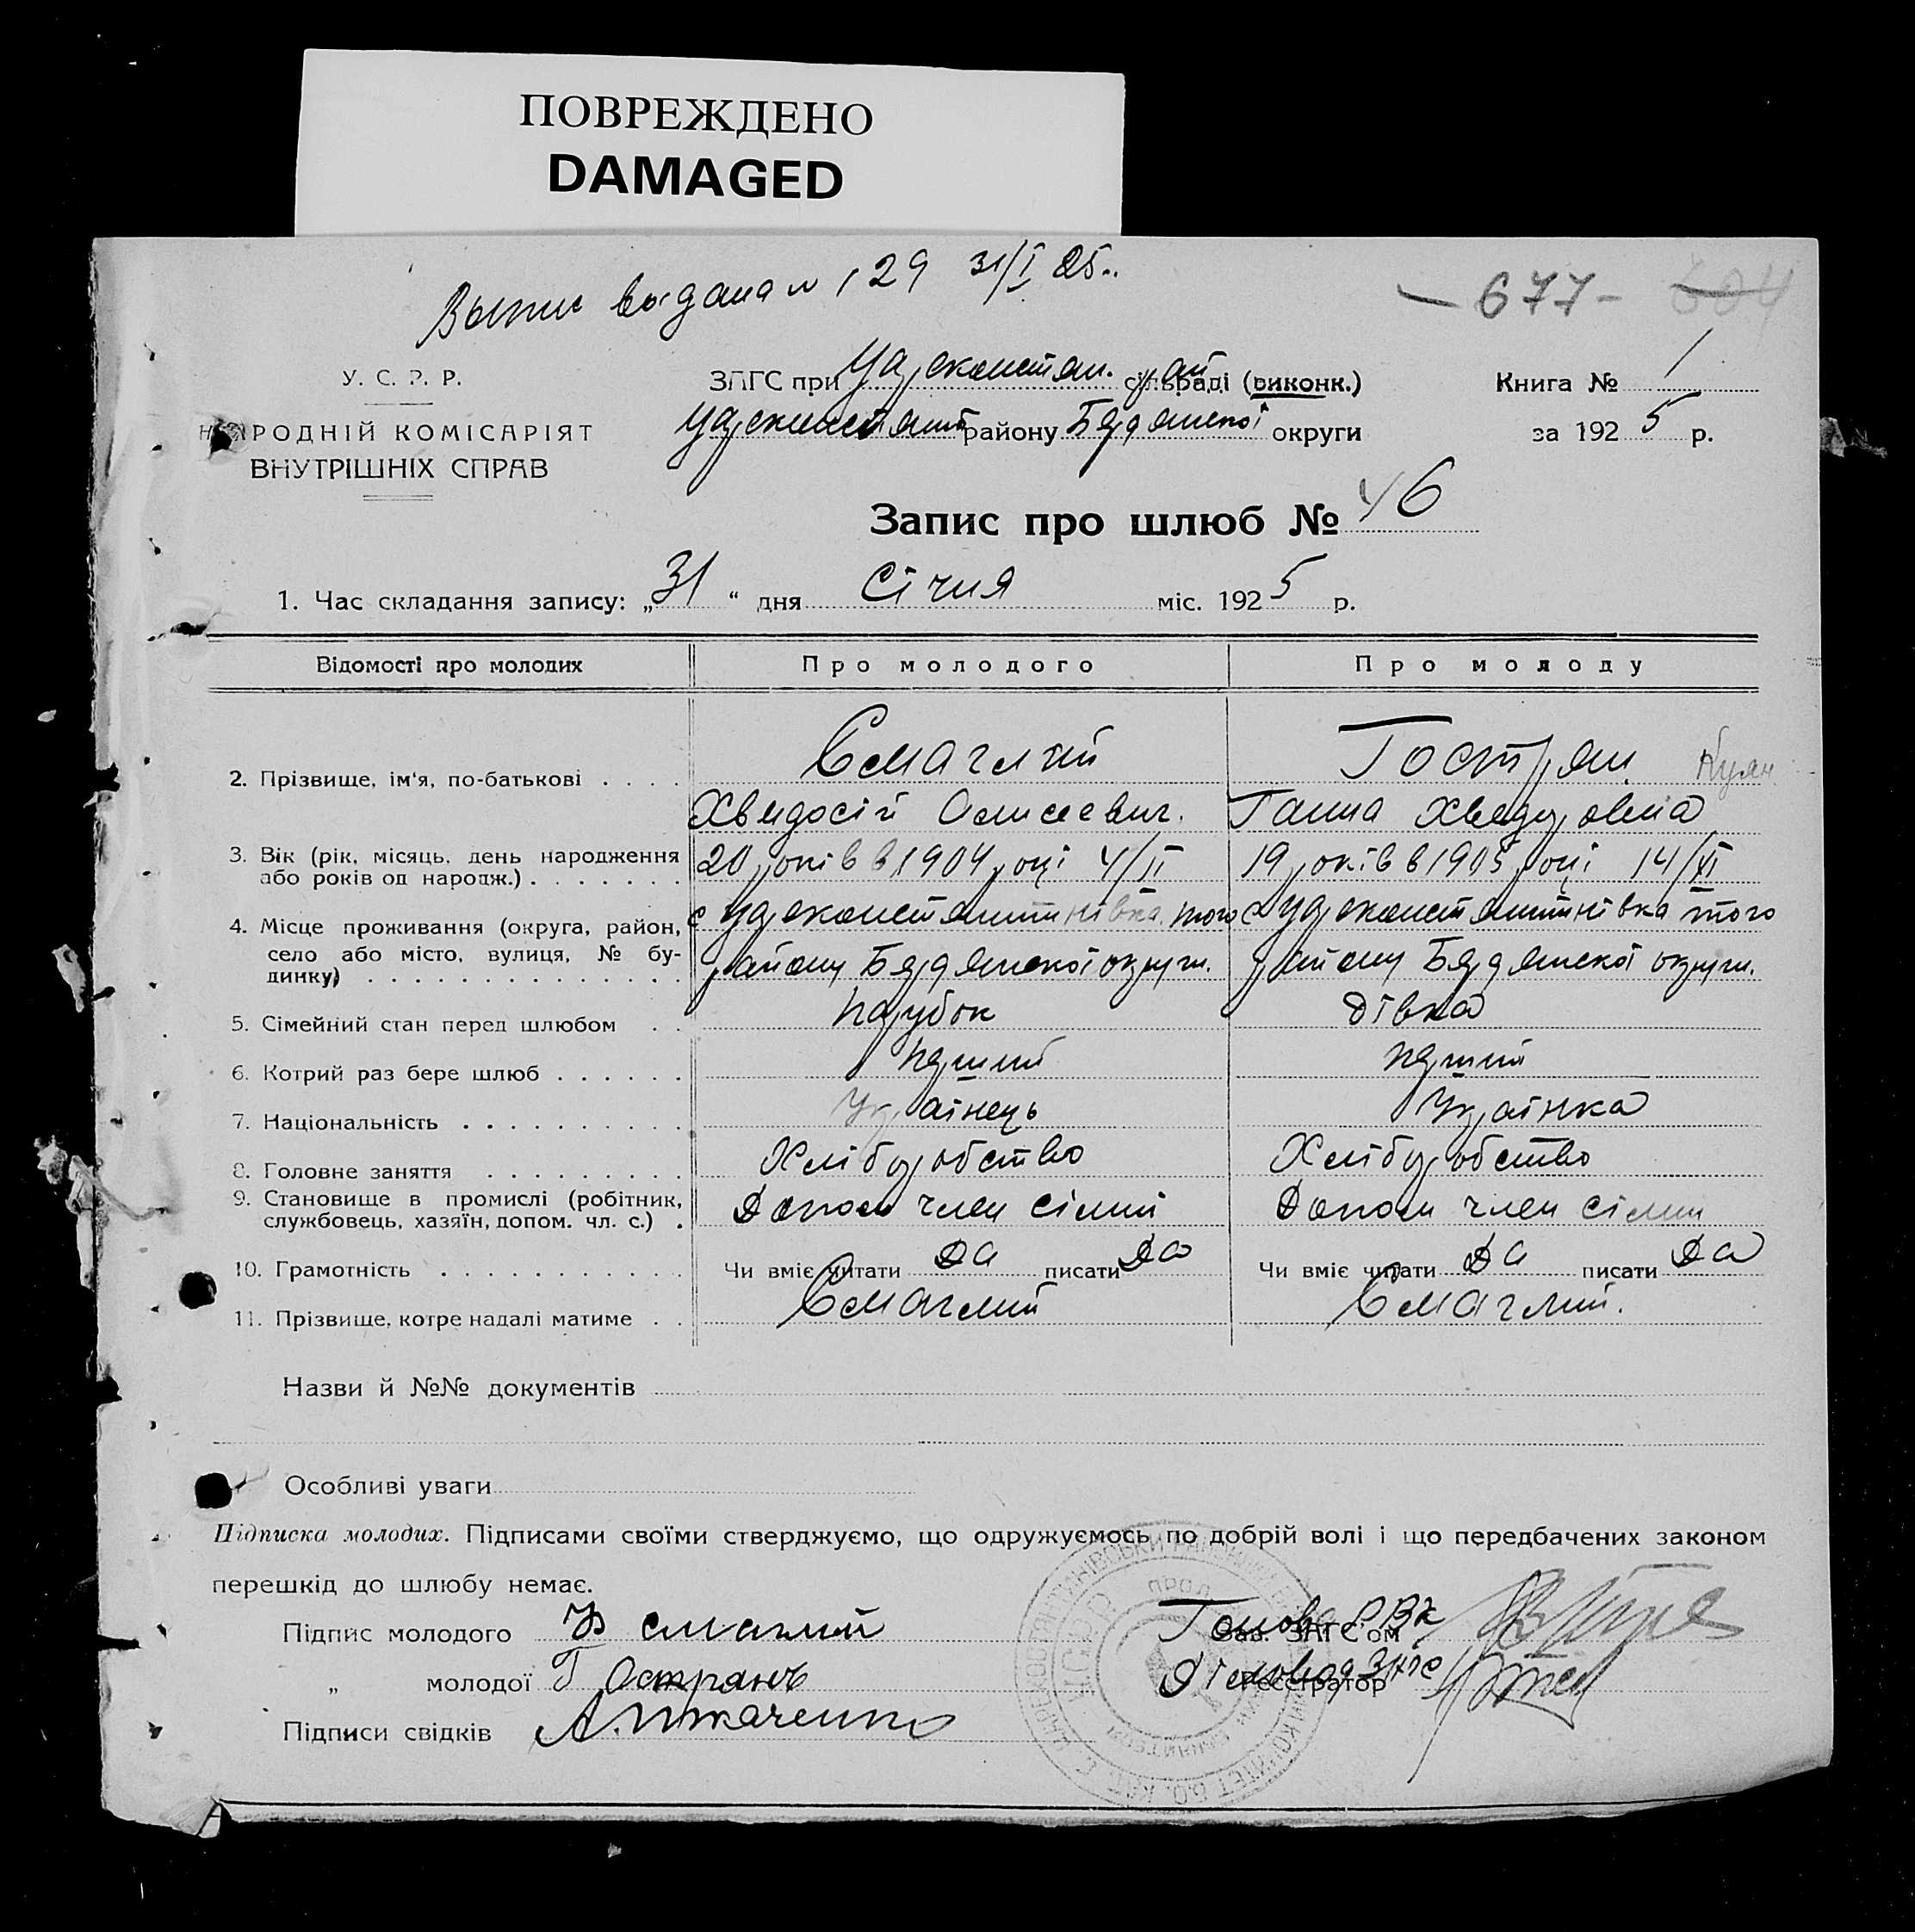 ПОВРЕЖДЕНО
DAMAGED
Выпис выдана № 129 31/I 25..
— 677 – 604
У. С. Р. Р.
НАРОДНІЙ КОМІСАРІЯТ
ВНУТРІШНІХ СПРАВ
ЗАГС при Цареконстан. рай сільраді (виконк.)
Книга № 1
району Бердянської округи
за 1925 р.
Запис про шлюб № 46
1. Час складання запису: „31“ дня Січня міс. 1925 р.
Відомості про молодих Про молодого Про молоду
2. Прізвище, ім'я, по-батькові . . . . Смаглий Гострян.
Хведосій Олисеевич. Ганна Хведоровна
3. Вік (рік, місяць, день народження 20 років в 1904 році 4/II 19 років в 1905 році 14/XI
або років од народж.) . . . . . . .
4. Місце проживання (округа, район, с Цареконстянтинівка того с Цареконстянтинівка того
село або місто, вулиця, № бу- району Бердянської округи. району Бердянської округи.
динку) . . . . . . . . . . . . . .
5. Сімейний стан перед шлюбом . . парубок дівка
6. Котрий раз бере шлюб . . . . . . перший перший
7. Національність . . . . . . . . . . Українець Українка
8. Головне заняття . . . . . . . . . Хліборобство Хліборобство
9. Становище в промислі (робітник, Допом член сімии Допом член сімии
службовець, хазяїн, допом. чл. с.) .
10. Грамотність . . . . . . . . . . . Чи вміє читати Да писати Да Чи вміє читати Да писати Да
11. Прізвище, котре надалі матиме . . Смаглий Смаглий.
Назви й №№ документів
Особливі уваги
Підписка молодих. Підписами своїми стверджуємо, що одружуємось по добрій волі і що передбачених законом
перешкід до шлюбу немає.
Підпис молодого Смаглий Голова РВК
Зав. ЗАГС'ом
„ молодої Г Острянъ Діловод Загс
Реєстратор
Підписи свідків А. Ткаченко